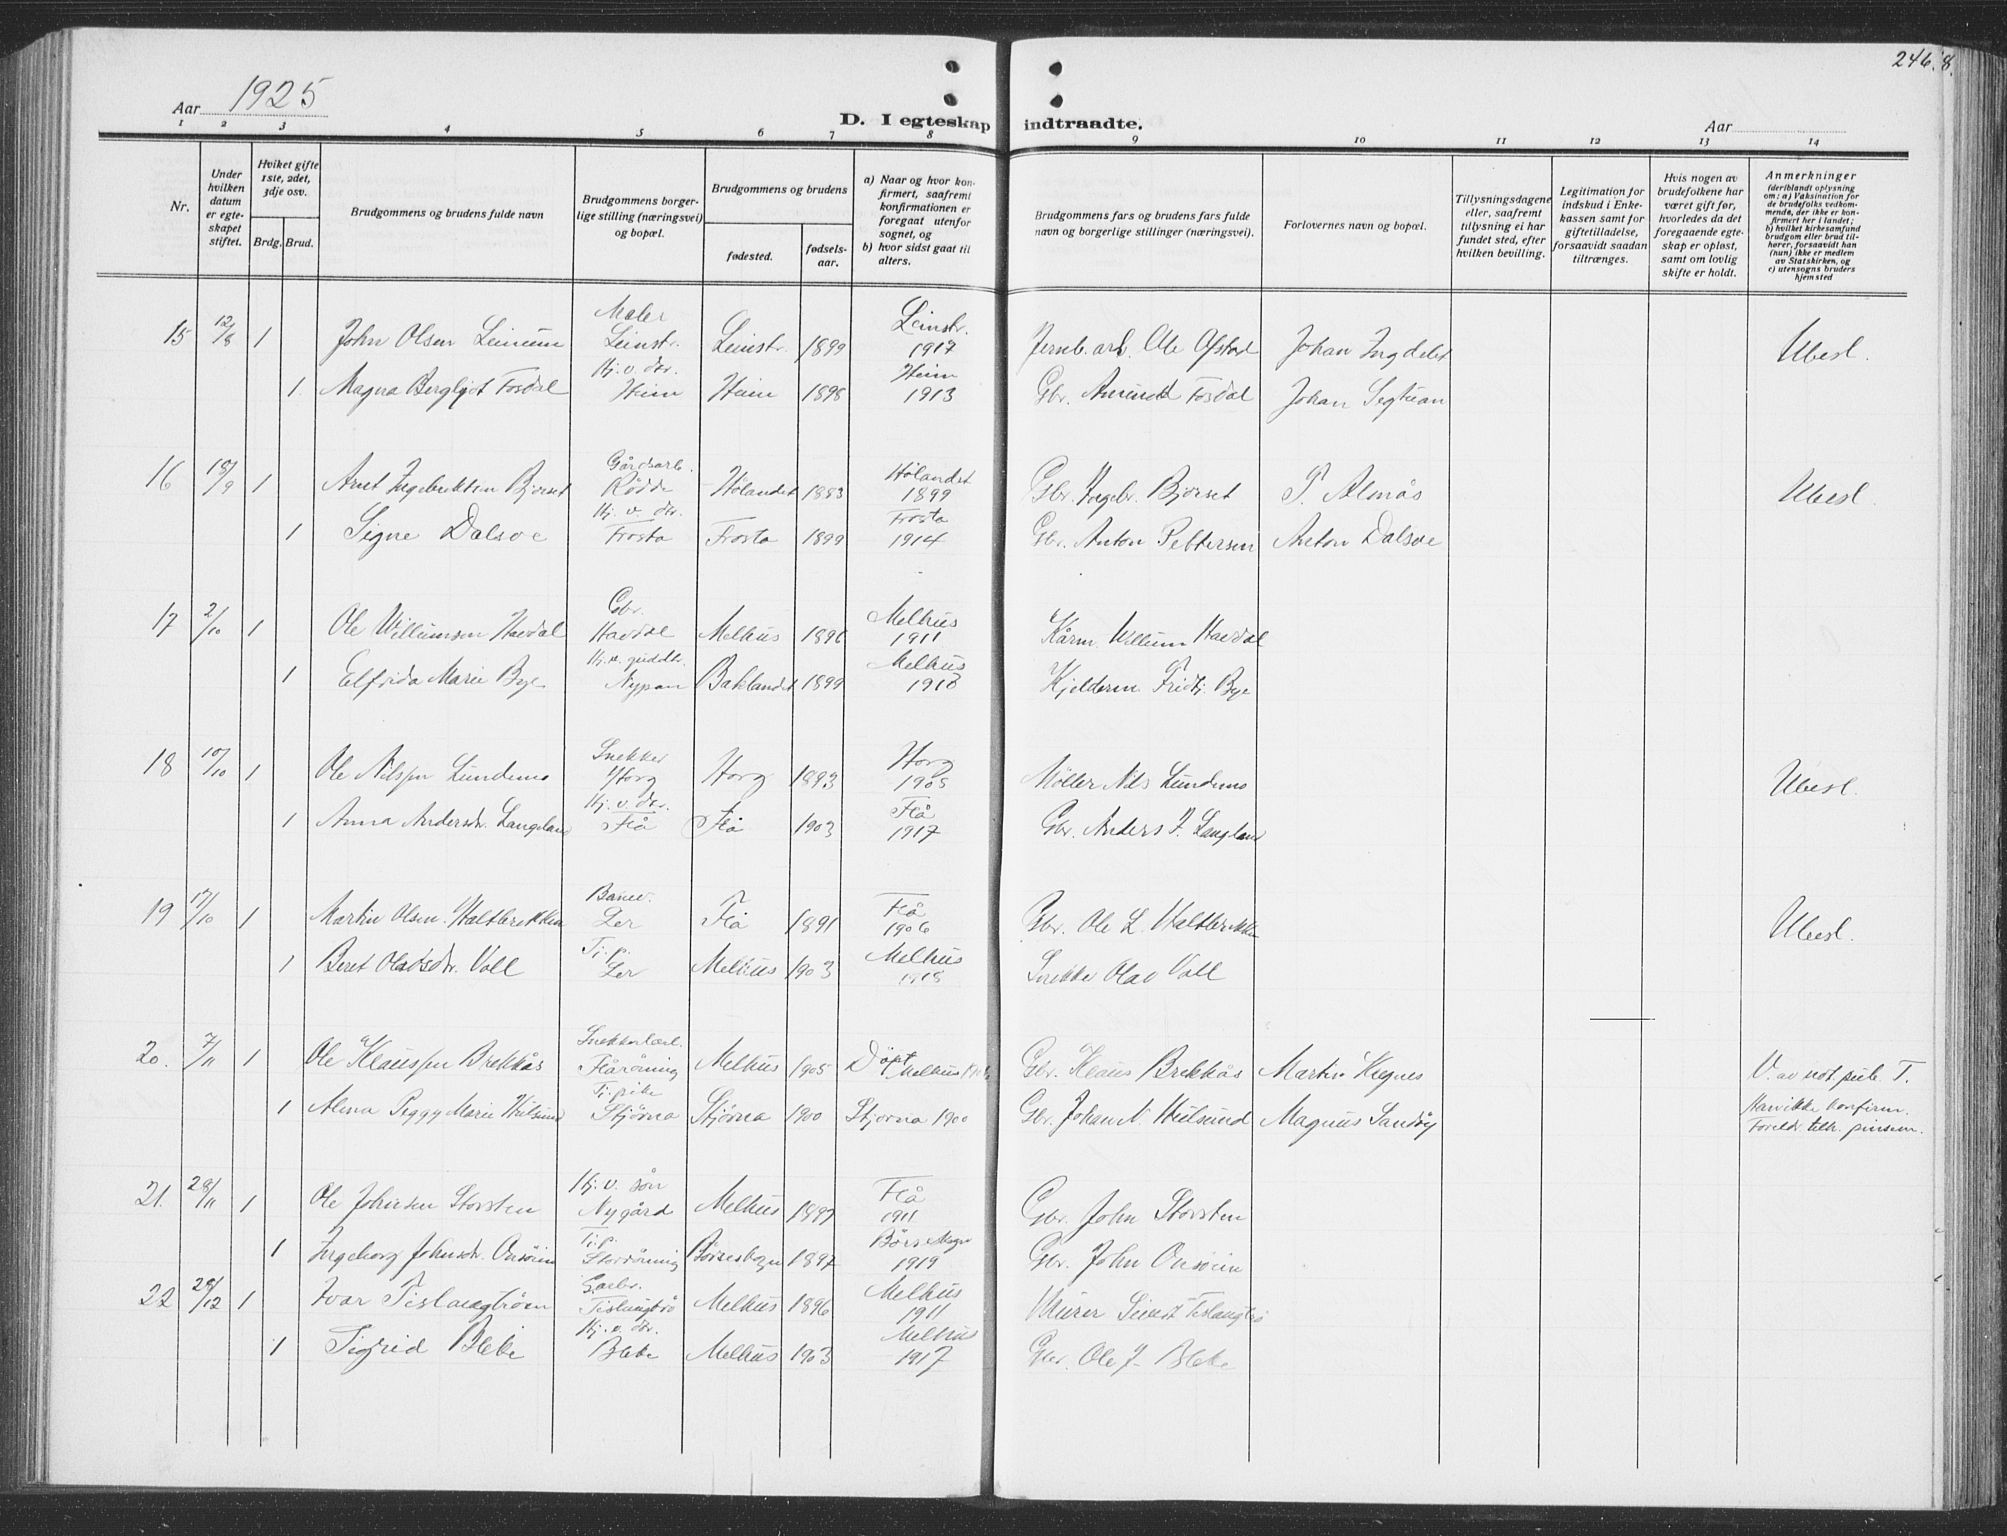 246. 8.
Aar 1925
D. I egteskap indtraadte.
Aar
1 2 3 4 5 6 7 8 9 10 11 12 13 14
Nr.
Under hvilken datum er egteskapet stiftet.
Hvilket gifte 1ste, 2det, 3dje osv.
Brdg. Brud.
Brudgommens og brudens fulde navn
Brudgommens borgerlige stilling (næringsvei) og bopæl.
Brudgommens og brudens
fødested.
fødselsaar.
a) Naar og hvor konfirmert, saafremt konfirmationen er foregaat utenfor sognet, og
b) hvor sidst gaat til alters.
Brudgommens fars og brudens fars fulde navn og borgerlige stillinger (næringsvei).
Forlovernes navn og bopæl.
Tillysningsdagene eller, saafremt tillysning ei har fundet sted, efter hvilken bevilling.
Legitimation for indskud i Enkekassen samt for giftetilladelse, forsaavidt saadan tiltrænges.
Hvis nogen av brudefolkene har været gift før, hvorledes da det foregaaende egteskap er opløst, samt om lovlig skifte er holdt.
Anmerkninger
(deriblandt oplysning om: a) Vaksination for de brudefolks vedkommende, der ikke er konfirmert her i landet; b) hvilket kirkesamfund brudgom eller brud tilhører, forsaavidt han (hun) ikke er medlem av Statskirken, og c) utensogns bruders hjemsted
15 12/8 1 John Olsen Leinum Maler Leinstr. Leinstr. 1899 Leinstr. 1917 Jernb.arb. Ole Ofstad Johan Ingdeler Ubesl.
1 Magna Bergljot Fosdal Hj. v. dtr. Heim Heim 1898 Heim 1913 Gbr. Amund Fosdal Johan Segtnan
16 18/9 1 Arnt Ingebrektsen Bjørset Gårdsarb. Rødde Hølandet 1883 Hølandet 1899 Gbr. Ingebr. Bjørset P. Almås Ubesl.
1 Signe Dalsve Hj. v. dtr. Frosta Frosta 1899 Frosta 1914 Gbr. Anton Pettersen Anton Dalsve
17 2/10 1 Ole Willumsen Havdal Gbr. Havdal Melhus 1896 Melhus 1911 Kårm. Willum Havdal
1 Elfrida Marie Bye Hj. v. guddtr. Nypan Baklandet 1899 Melhus 1913 Kjelderm. Fridtj. Bye
18 10/10 1 Ole Nilsen Lundemo Snekker Horg Horg 1893 Horg 1908 Møller Nils Lundemo Ubesl.
1 Anna Andersdr. Langeland Hj. v. dtr. Flå Flå 1903 Flå 1917 Gbr. Anders J. Langland
19 17/10 1 Martin Olsen Haltbrekken Banev. Ler Flå 1891 Flå 1906 Gbr. Ole L. Haltbrekken Ubesl.
1 Beret Olavsdr. Voll Tj. p. Ler Melhus 1903 Melhus 1918 Snekker Olav Voll
20. 7/11 1 Ole Klausen Brekkås Snekkerlærl. Flårønning Melhus 1905 Døpt Melhus Gbr. Klaus Brekkås Martin V. av not. pub. T.
1 Alma Peggy Marie Hulsund Tj. pike Stjørna Stjørna 1900 Stjørna 1900 Gbr. Johan N. Hulsund Magnus Sandøy Han ikke konfirm. Foreldr. tilh. pinsem.
21. 28/11 1 Ole Johnsen Storsten Hj. v. søn Nygård Melhus 1897 Flå 1911 Gbr. John Storsten
1 Ingeborg Johnsdr. Onsøien Tj. p. Storrønning Børseskogn 1897 Børseskogn 1919 Gbr. John Onsøien
22 29/12 1 Ivar Teslaugtrøen Melhus 1896 Melhus 1911 Murer
1 Sigrid Bleke Hj. v. dtr. Bleke Melhus 1903 Melhus 1917 Gbr. Ole J. Bleke